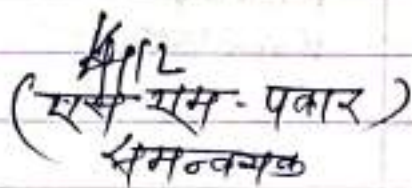 (एस. एम. पवार)
समन्वयक